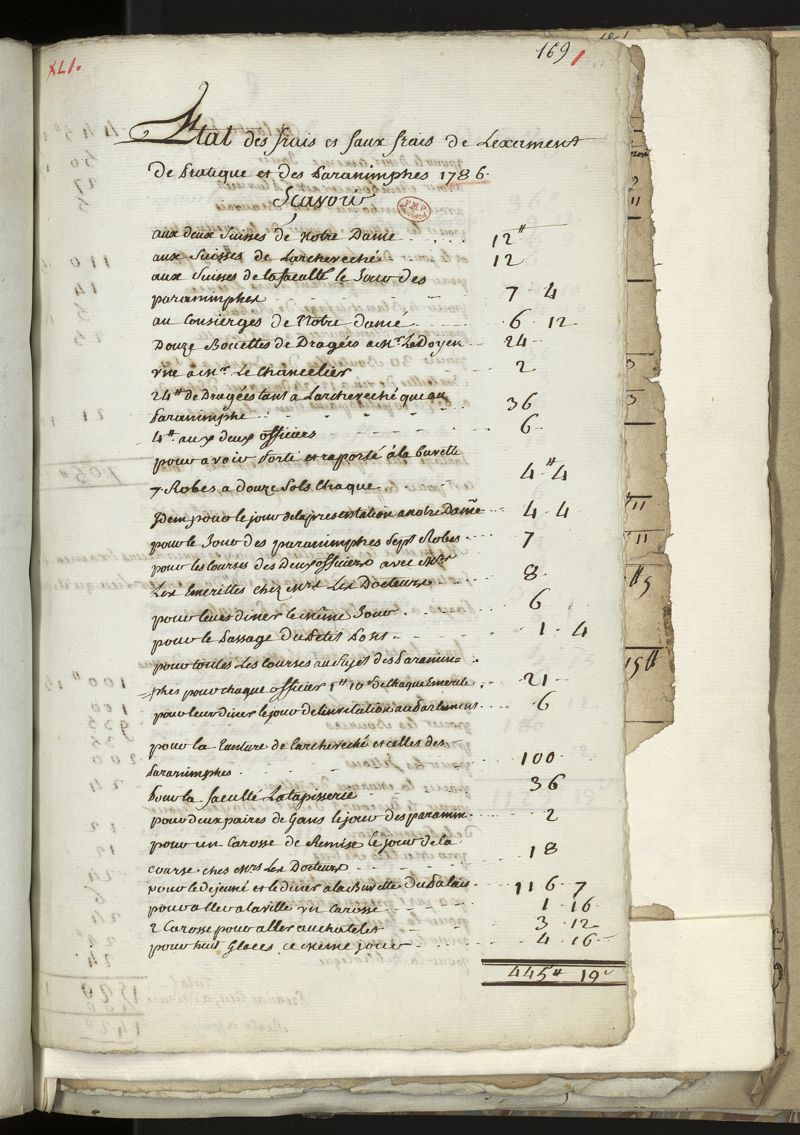 XLI.
169
Etat des frais et faux frais de Lexament
de Pratique et des Paranimphes 1786.
Scavoir
aux deux Suisses de Notre Dame 12#
aux Suisses de Larcheveché 12
aux Suisses de la faculté le Jour des
paranimphes 7 4
au Consierges de Notre dame 6 12
Douze Bouettes de Dragées a Mr. Le Doyen 24
une a Mr. Le Chancelier 2
24# de Dragées tant a Larcheveché que au
Paranimphe 36
4# aux deux officiers 6
pour avoir Porté et raporté à la buvette
7 Robes a douze Sols Chaque 4# 4
Idem pour le jour de la presentation a notre Dame 4 4
pour le Jour des paranimphes Sept Robes 7
pour les Courses des Deux officiers avec Mrs
Les Emerittes chez Mrs Les Docteurs 8
pour leurs diner le Même Jour 6
pour le Passage du Petit Pont 1 4
pour toutes Les Courses au Sujet des Paranim=
=phes pour chaque officier 1# 10s de Chaque Emerite 21
pour leur diner le jour de l'invitation au Parlement 6
pour la Tanture de Larcheveché et celles des
Paranimphes 100
Pour la faculté La tapisserie 36
pour deux paires de Gans le jour des paranim. 2
pour un Carosse de Remise le jour de la
course ches Mrs Les Docteurs 18
pour le dejeuné et le diner a la Buvette du Palais 116 7
pour aller a la ville un Carosse 1 16
2 Carosse pour aller au chatelet 3 12
pour huit Glaces ce même jour 4 16
445# 19s